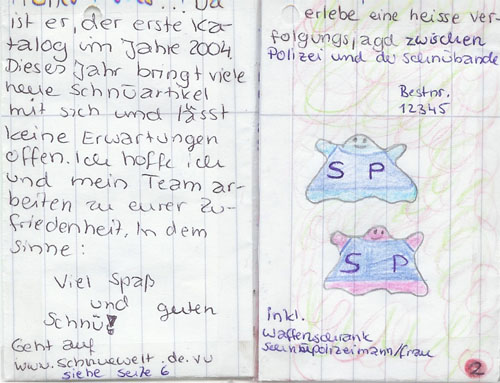 ist er, der erste Ka-
talog im Jahre 2004.
Dieses Jahr bringt viele
neue Schnüartikel
mit sich und lässt
keine Erwartungen
offen. Ich hoffe ich
und mein Team ar-
beiten zu eurer Zu-
friedenheit, In dem
sinne:
Viel Spaß
und guten
Schnü!
Geht auf
www.schnuewelt.de.vu
siehe seite 6
erlebe eine heisse Ver-
folgungsjagd zwischen
Polizei und der schnübande
Bestnr.
12345
S P
S P
inkl.
Waffenschrank
Schnüpolizeimann/frau
2